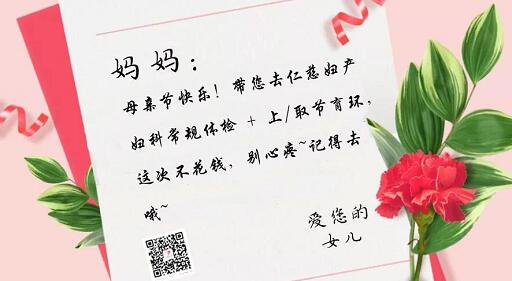 妈妈：
母亲节快乐！带您去仁慈妇产
妇科常规体检 + 上/取节育环，
这次不花钱，别心疼~记得去
哦~
爱您的
女儿